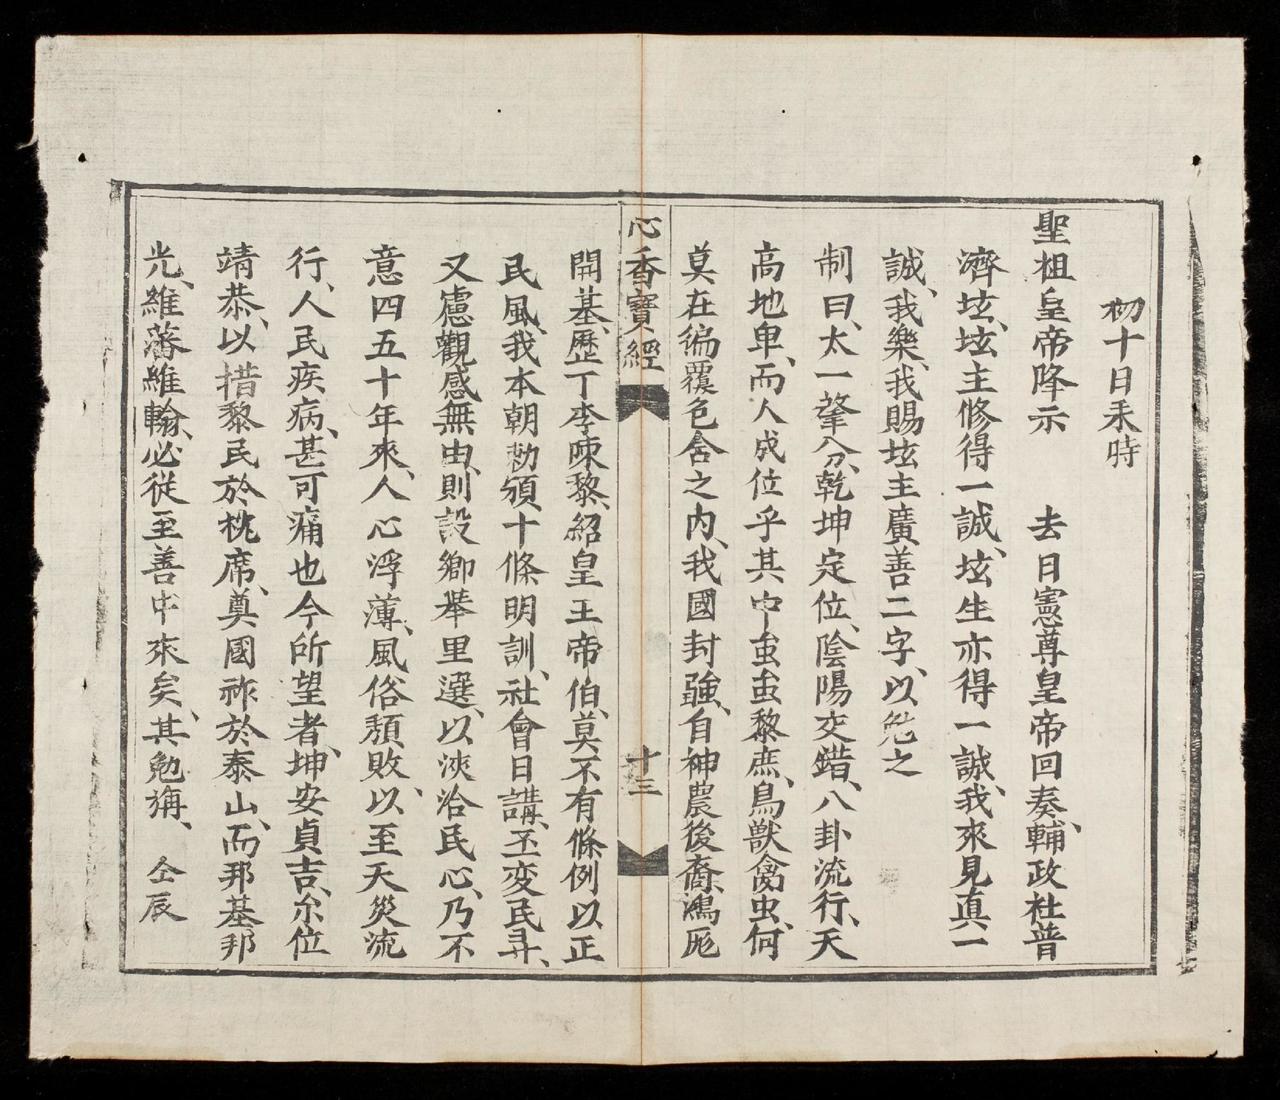 初十日未時
聖祖皇帝降示　去日憲尊皇帝回奏、輔政社普
濟坛、坛主修得一誠、坛生亦得一誠、我來見真一
誠、我樂、我賜坛主廣善二字、以勉之
制曰、太一肇分、乾坤定位、陰陽交錯、八卦流行、天
高地卑、而人成位乎其中蚩蚩黎庶、鳥獸禽虫、何
莫在徧覆包含之内、我國封疆、自神農後裔、鴻厖
心香寶經　十三
開基、歷丁李陳黎、紹皇王帝伯、莫不有條例以正
民風、我本朝勑頒十條明訓、社會日講、丕変民彛、
又慮觀感無由、則設鄉舉里選、以浹洽民心、乃不
意四五十年來、人心浮薄、風俗頹敗、以至天災流
行、人民疾病、甚可痛也今所望者、坤安貞吉、尒位
靖恭、以措黎民於枕席、奠國祚於泰山、而邦基邦
光、維藩維翰、必從至善中來矣、其勉旃、　仝辰